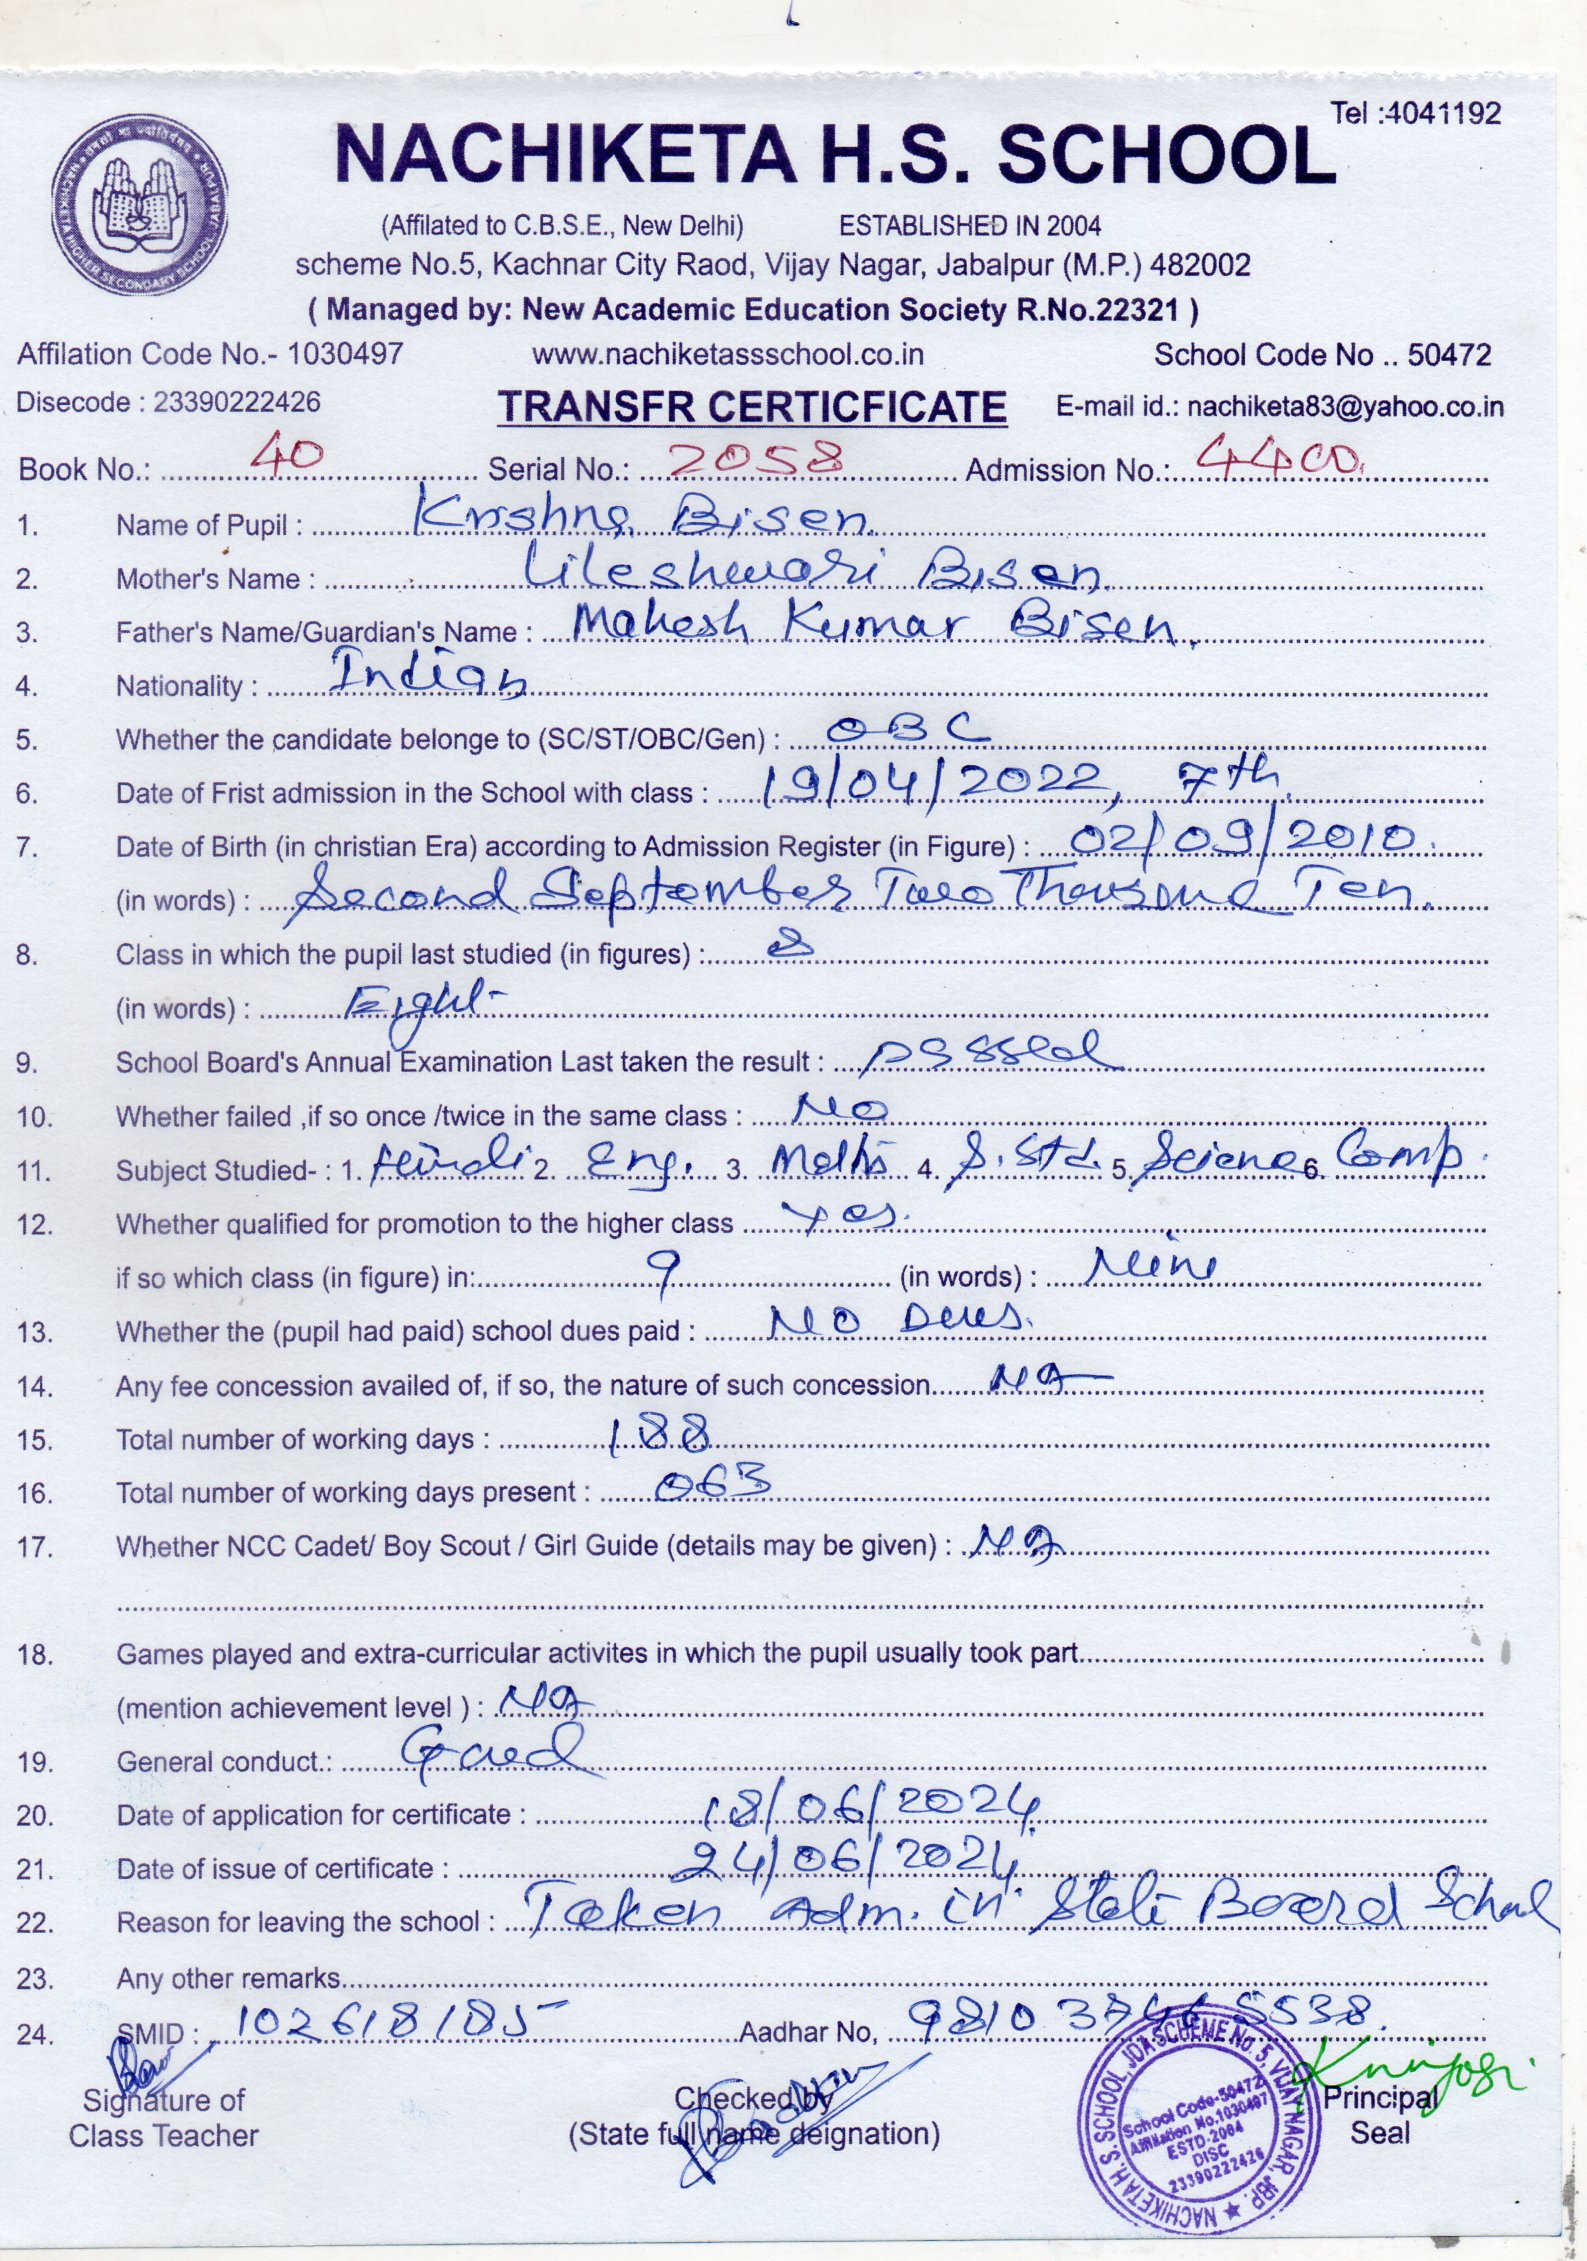 Tel :4041192
NACHIKETA H.S. SCHOOL
(Affilated to C.B.S.E., New Delhi) ESTABLISHED IN 2004
scheme No.5, Kachnar City Raod, Vijay Nagar, Jabalpur (M.P.) 482002
( Managed by: New Academic Education Society R.No.22321 )
Affilation Code No.- 1030497 www.nachiketassschool.co.in School Code No .. 50472
Disecode : 23390222426 TRANSFR CERTICFICATE E-mail id.: nachiketa83@yahoo.co.in
Book No.: 40 Serial No.: 2058 Admission No.: 4400.
1. Name of Pupil : Krishna Bisen.
2. Mother's Name : Lileshwari Bisen.
3. Father's Name/Guardian's Name : Mahesh Kumar Bisen.
4. Nationality : Indian
5. Whether the candidate belonge to (SC/ST/OBC/Gen) : OBC
6. Date of Frist admission in the School with class : 19/04/2022, 7th.
7. Date of Birth (in christian Era) according to Admission Register (in Figure) : 02/09/2010.
(in words) : Second September Two Thousand Ten.
8. Class in which the pupil last studied (in figures) : 8
(in words) : Eight
9. School Board's Annual Examination Last taken the result : passed
10. Whether failed ,if so once /twice in the same class : No
11. Subject Studied- : 1. Hindi 2. Eng. 3. Maths 4. S.Std. 5. Science 6. Comp.
12. Whether qualified for promotion to the higher class Yes.
if so which class (in figure) in: 9 (in words) : Nine
13. Whether the (pupil had paid) school dues paid : No Dues.
14. Any fee concession availed of, if so, the nature of such concession NA
15. Total number of working days : 188
16. Total number of working days present : 063
17. Whether NCC Cadet/ Boy Scout / Girl Guide (details may be given) : NA
18. Games played and extra-curricular activites in which the pupil usually took part
(mention achievement level ) : NA
19. General conduct.: Good
20. Date of application for certificate : 18/06/2024.
21. Date of issue of certificate : 24/06/2024.
22. Reason for leaving the school : Taken Adm. in State Board School
23. Any other remarks
24. SMID : 102618185 Aadhar No, 9810 3746 5538.
Signature of Checked by Principal
Class Teacher (State full name deignation) Seal
NACHIKETA H. S. SCHOOL, JDA SCHEME No. 5, VIJAY NAGAR, JBP.
School Code-50472
Affiliation No.1030497
ESTD-2004
DISC
23390222426